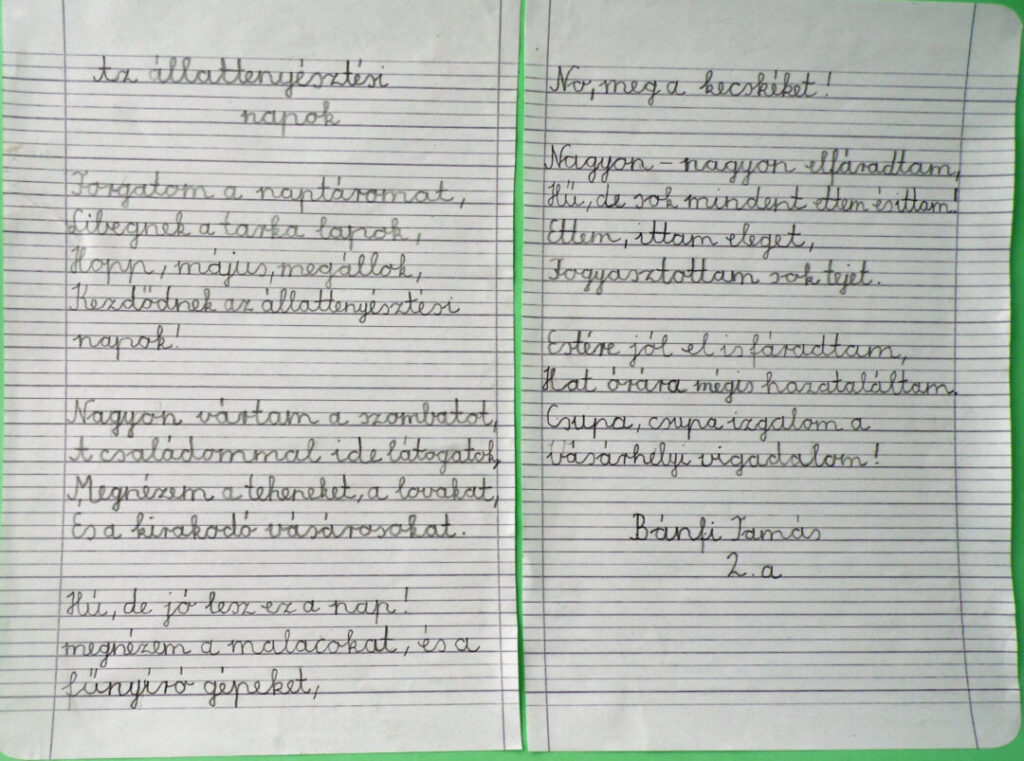 Az állattenyésztési
napok
Forgatom a naptáromat,
Libegnek a tarka lapok,
Hopp, május, megállok,
Kezdődnek az állattenyésztési
napok!
Nagyon vártam a szombatot,
A családommal ide látogatok,
Megnézem a teheneket, a lovakat,
És a kirakodó vásárosokat.
Hú, de jó lesz ez a nap!
megnézem a malacokat, és a
fűnyíró gépeket,
No, meg a kecskéket!
Nagyon - nagyon elfáradtam,
Hű, de sok mindent ettem és ittam!
Ettem, ittam eleget,
Fogyasztottam sok tejet.
Estére jól el is fáradtam,
Hat órára mégis hazataláltam.
Csupa, csupa izgalom a
vásárhelyi vigadalom!
Bánfi Tamás
2. a